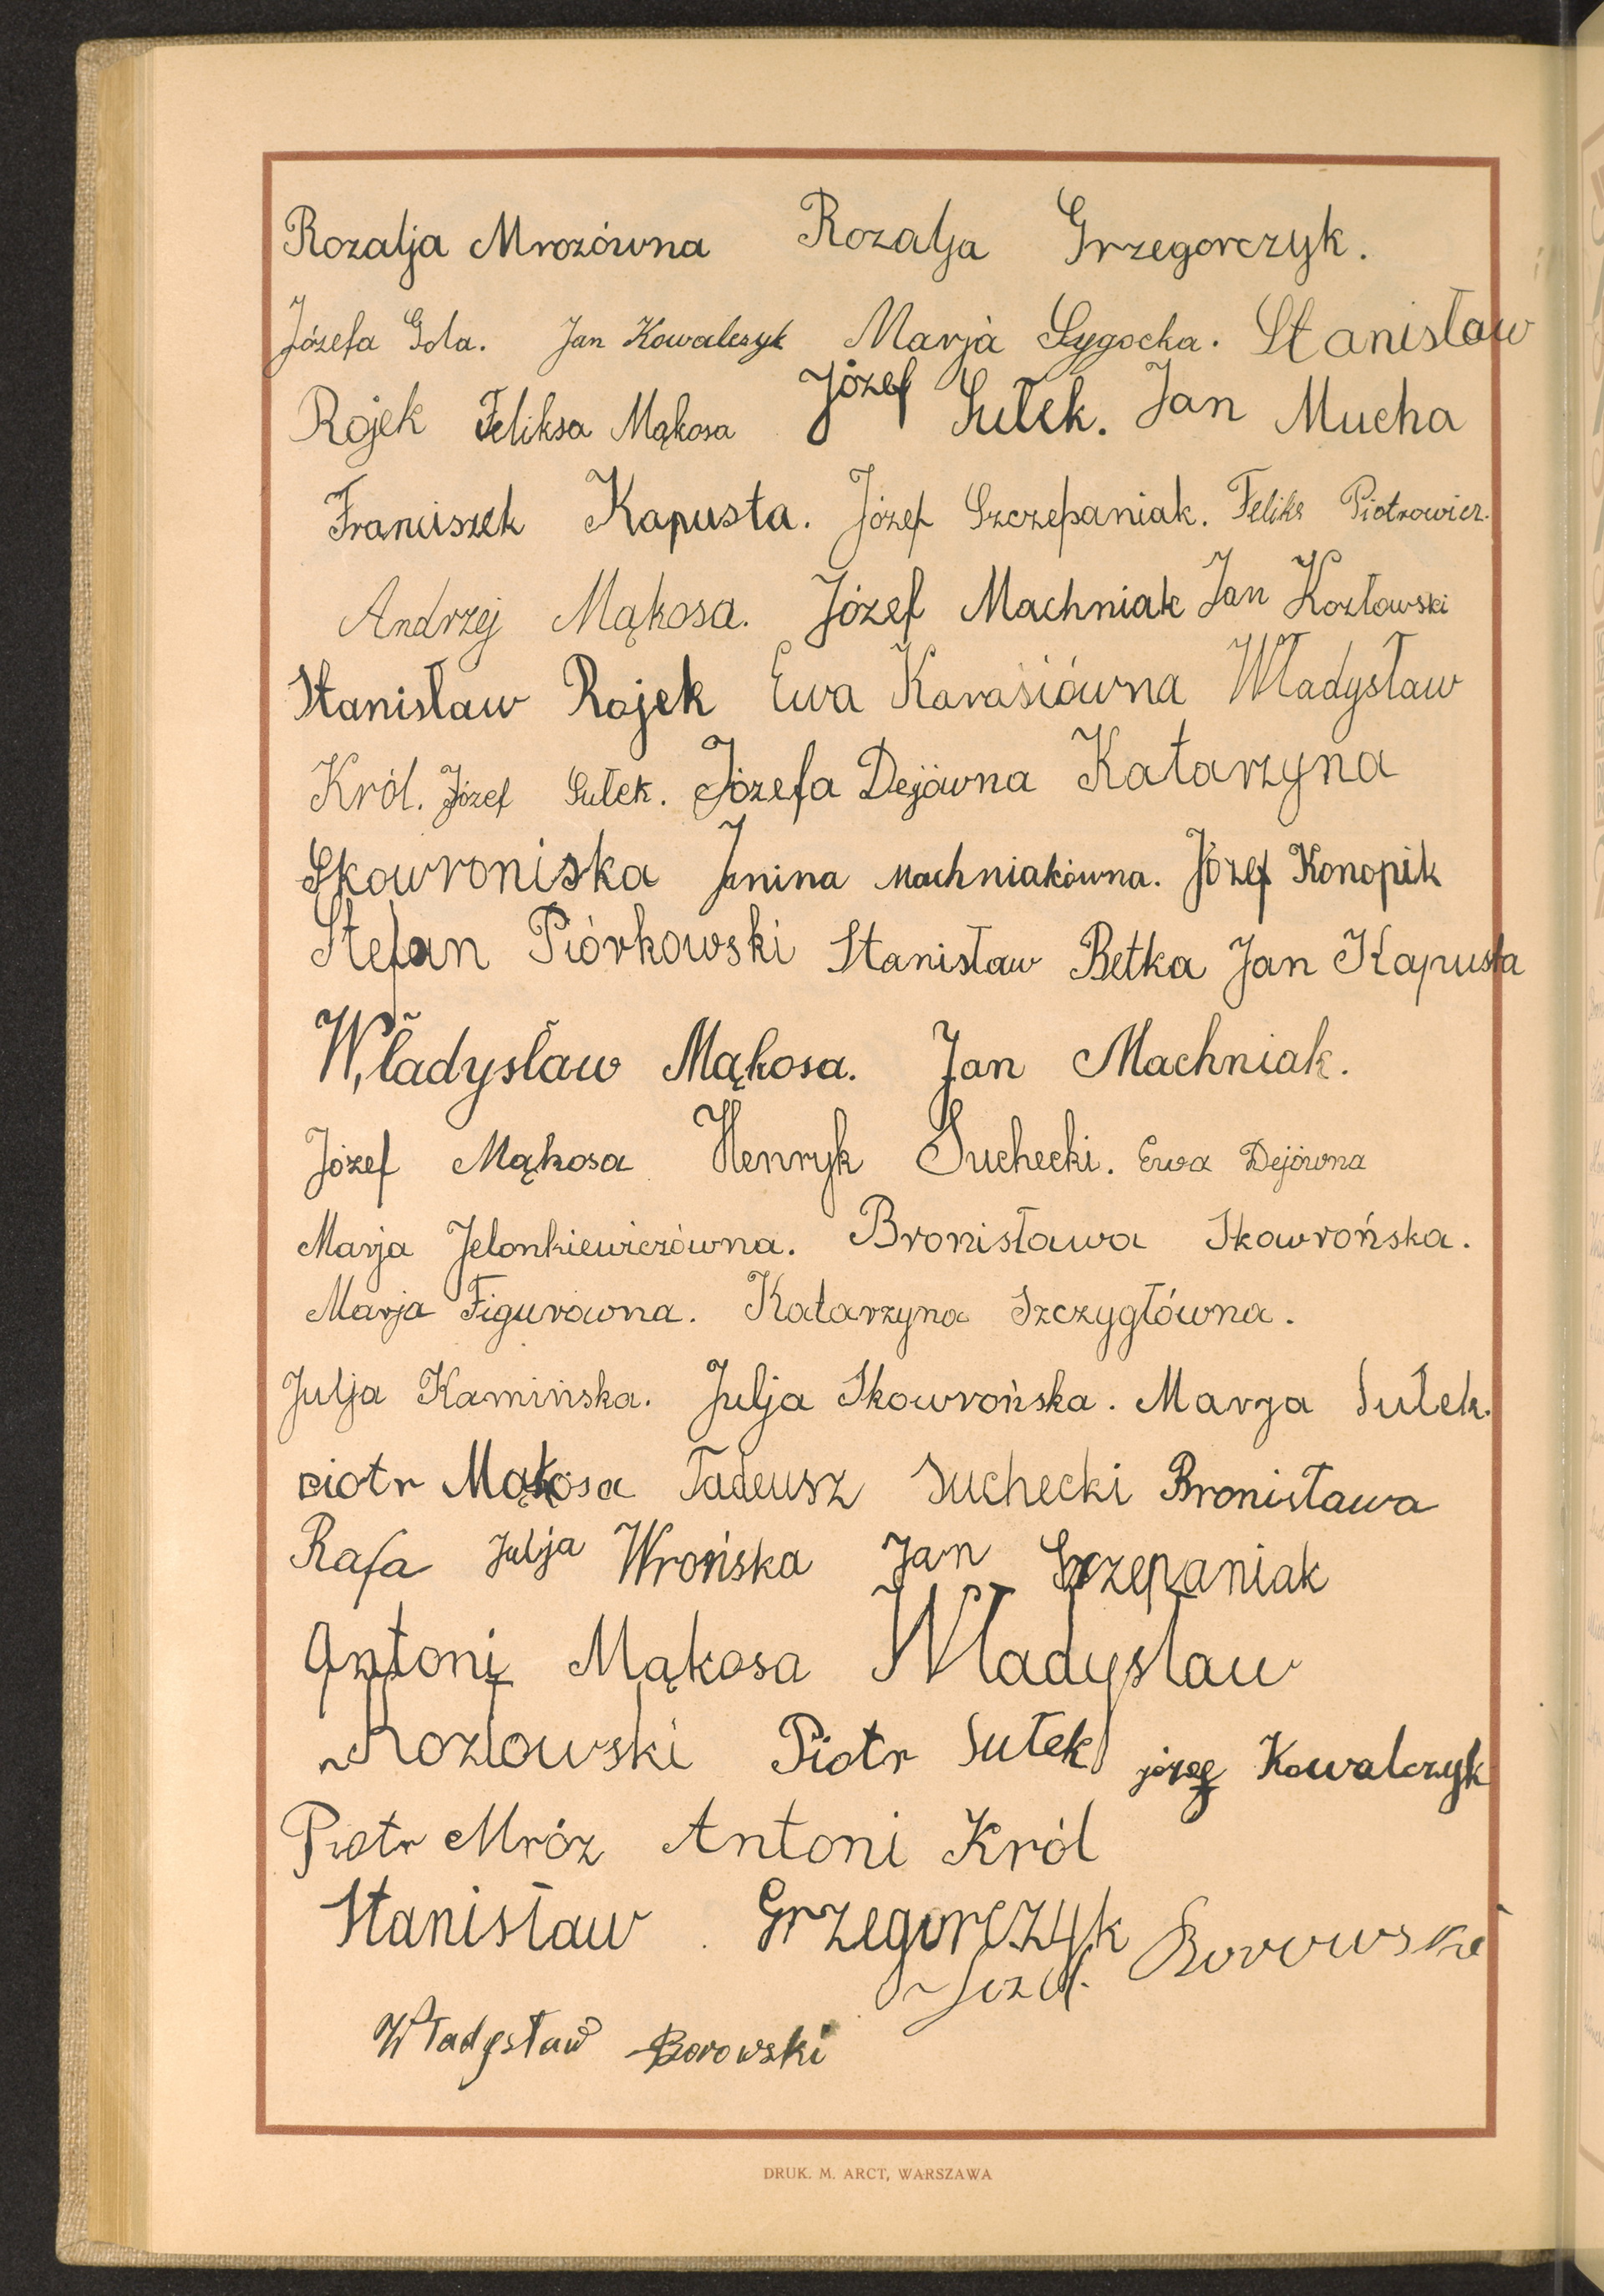 Rozalja Mrozówna Rozalja Grzegorczyk.
Józefa Gola. Jan Kowalczyk Marja Sygocka. Stanisław
Rojek Feliksa Mąkosa Józef Sułek. Jan Mucha
Franciszek Kapusta. Józef Szczepaniak. Feliks Piotrowicz.
Andrzej Mąkosa. Józef Machniak Jan Kozłowski
Stanisław Rojek Ewa Karasiówna Władysław
Król. Józef Sułek. Józefa Dejówna Katarzyna
Skowroniska Janina Machniakówna. Józef Konopik
Stefan Piórkowski Stanisław Betka Jan Kapusta
Władysław Mąkosa. Jan Machniak.
Józef Mąkosa Henryk Suchecki. Ewa Dejówna
Marja Jelonkiewiczówna. Bronisława Skowrońska.
Marja Figurowna. Katarzyna Szczygłówna.
Julja Kamińska. Julja Skowrońska. Marja Sułek.
Piotr Mąkosa Tadeusz Suchecki Bronisława
Rafa Julja Wrońska Jan Szczepaniak
Antoni Mąkosa Władysław
Kozłowski Piotr Sułek józef Kowalczyk
Piotr Mróz Antoni Król
Stanisław Grzegorczyk
Józef. Borowski
Władysław Borowski
DRUK. M. ARCT, WARSZAWA